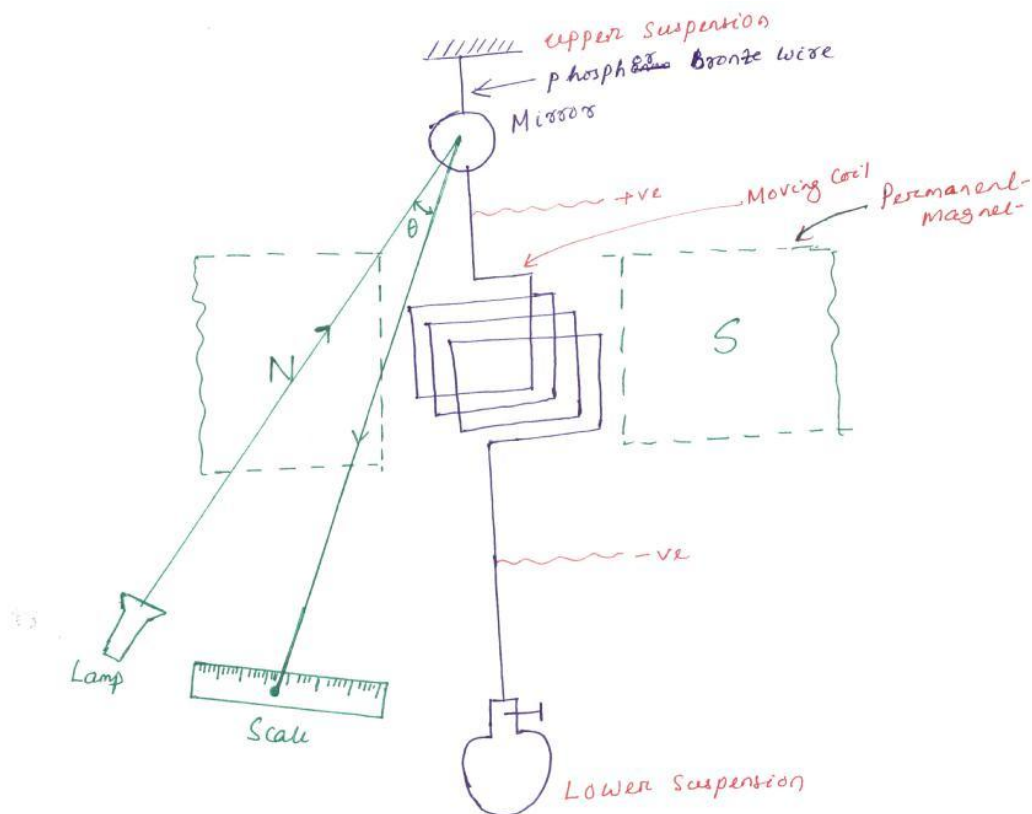 upper suspension
phosphor Bronze wire
Mirror
+ve
Moving coil
Permanent-
magnet-
θ
N
S
-ve
Lamp
Scale
Lower suspension